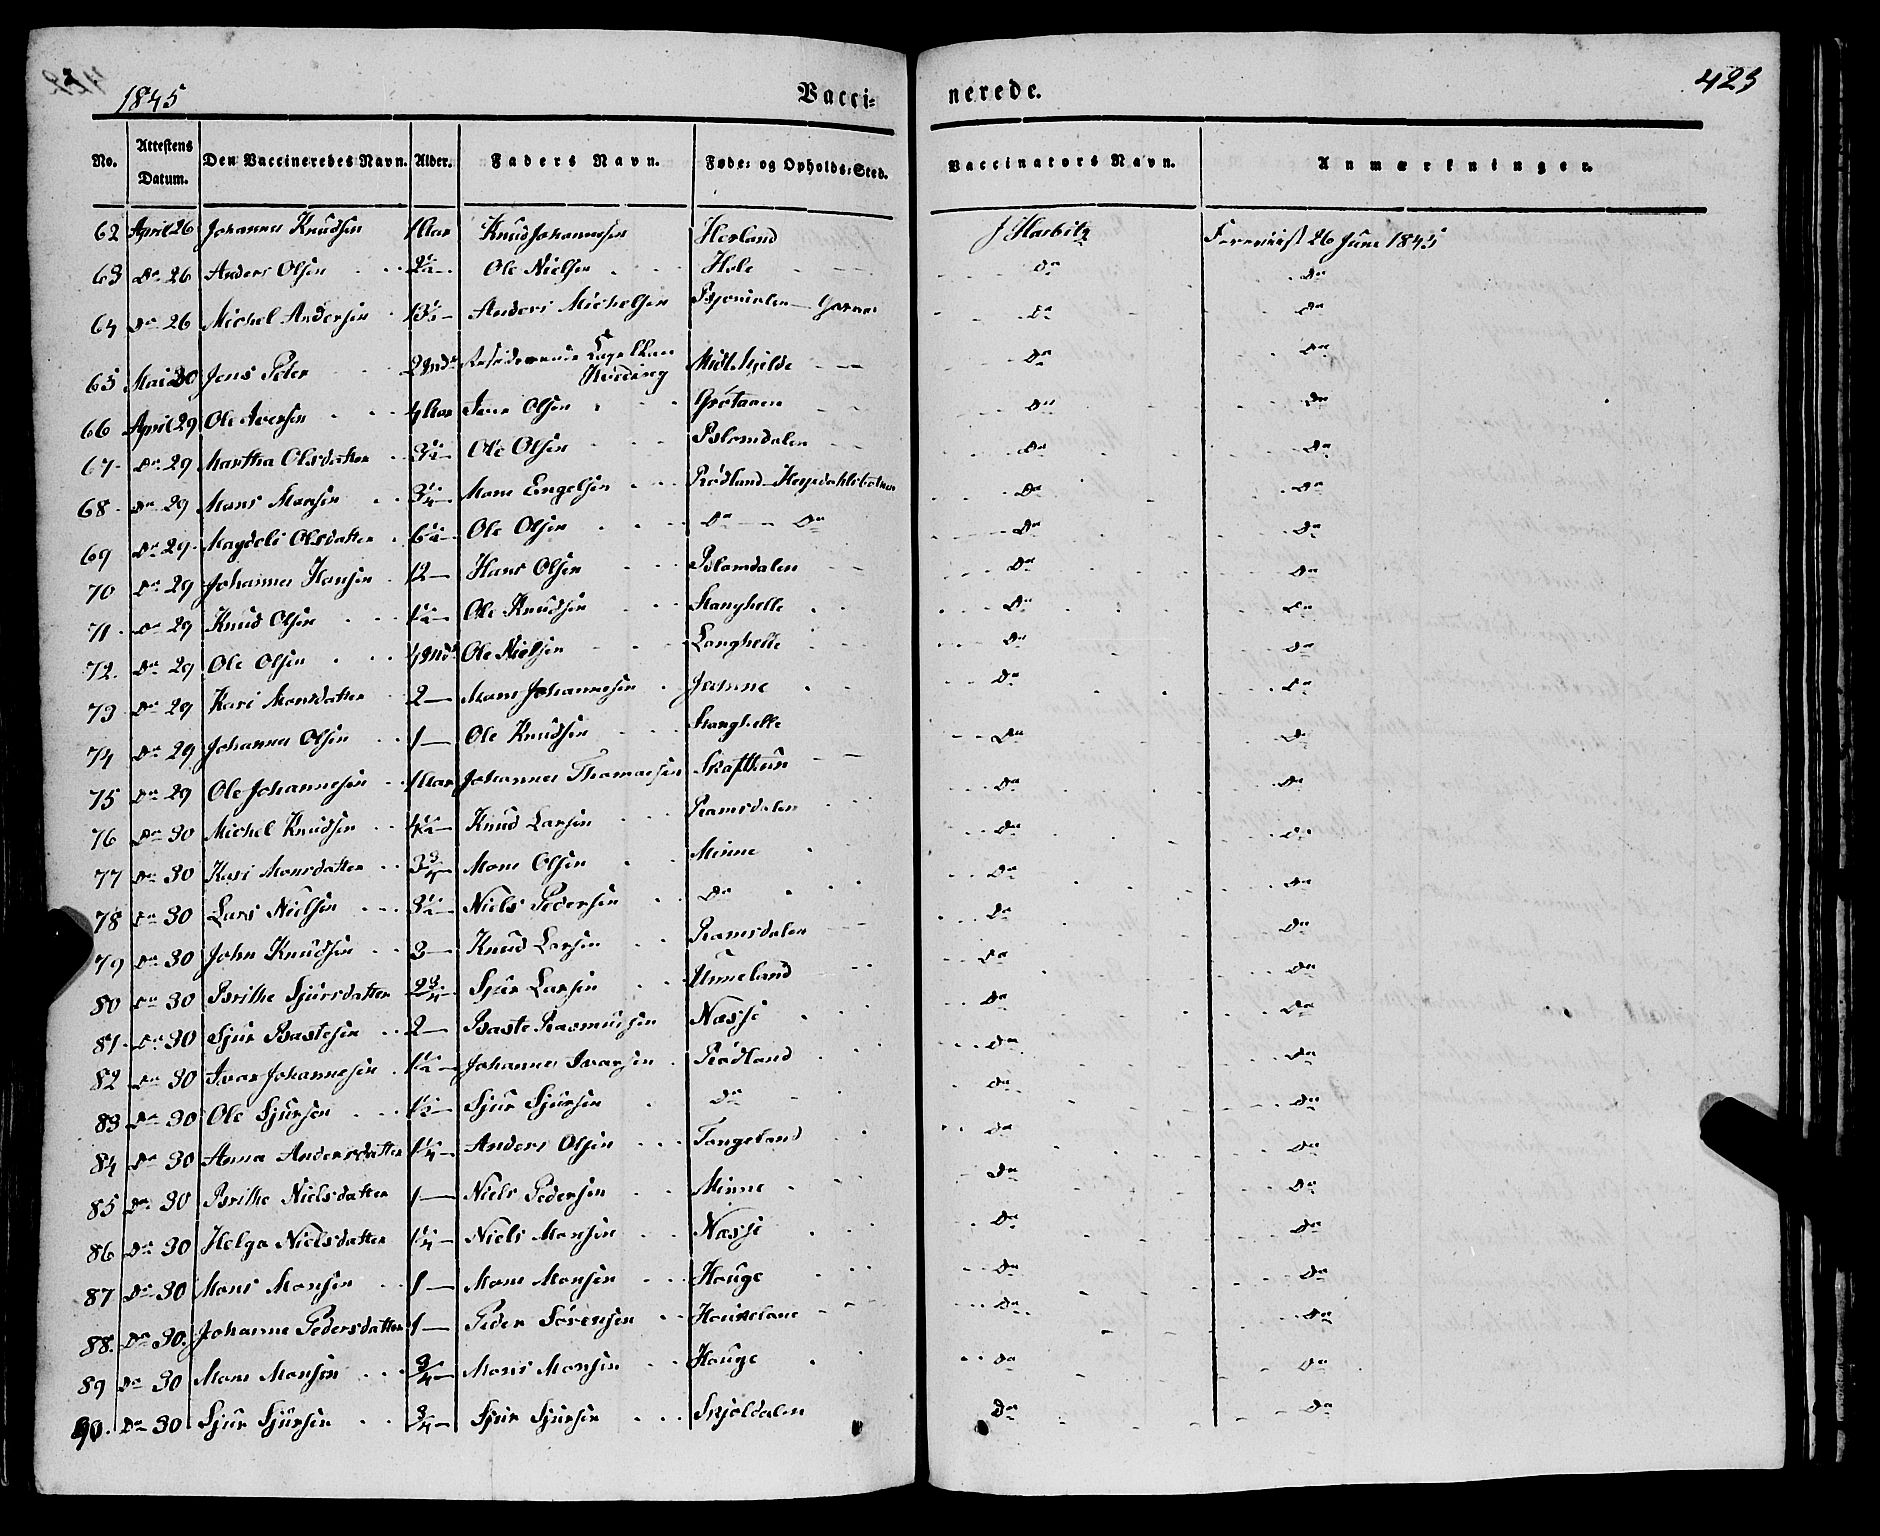 1845 Vacci- nerede. 423
No. Attestens Datum. Den Vaccineredes Navn. Alder. Faders Navn. Føde- og Opholds-Sted. Vaccinators Navn. Anmærkninger.
62 April 26 Johannes Knudsen 1 Aar Knud Johannesen Herland J Harbitz Foreviist 26 Juni 1845
63 Do 26 Anders Olsen 2½ — Ole Nielsen Hole Do Do
64 Do 26 Michel Andersen 13½ — Anders Michelsen Do Do
65 Mai 30 Jens Peter 2 Residerende Capellan Hveding Midthjelde Do Do
66 April 29 Ole Iversen 4 Aar Iver Olsen Grötaaen Do Do
67 Do 29 Martha Olsdatter 3½ — Ole Olsen Blomdalen Do Do
68 Do 29 Mons Monsen 3¼ — Mons Engelsen Rödland Do Do
69 Do 29 Magdeli Olsdatter 6½ — Ole Olsen Do — Do Do Do
70 Do 29 Johannes Hansen 12 — Hans Olsen Blomdalen Do Do
71 Do 29 Knud Olsen 1½ — Ole Knudsen Stanghelle Do Do
72 Do 29 Ole Olsen Ole Nielsen Langhelle Do Do
73 Do 29 Kari Monsdatter 2 — Mons Johannesen Do Do
74 Do 29 Johannes Olsen 1 — Ole Knudsen Stanghelle Do Do
75 Do 29 Ole Johannesen Johannes Thomassen Skafthun Do Do
76 Do 30 Michel Knudsen 4½ — Knud Larsen Ramsdalen Do Do
77 Do 30 Kari Monsdatter 3¾ — Mons Olsen Minne Do Do
78 Do 30 Lars Nielsen 3½ — Niels Pedersen Do Do Do
79 Do 30 John Knudsen 3 — Knud Larsen Ramsdalen Do Do
80 Do 30 Brithe Sjursdatter 2¾ — Sjur Larsen Unneland Do Do
81 Do 30 Sjur Bastesen 2 — Baste Rasmussen Næsse Do Do
82 Do 30 Ivar Johannesen 1½ — Johannes Ivarsen Rödland Do Do
83 Do 30 Ole Sjursen 1½ — Sjur Sjursen Do Do Do
84 Do 30 Anna Andersdatter 1¼ — Anders Olsen Tangeland Do Do
85 Do 30 Brithe Nielsdatter 1 — Niels Pedersen Minne Do Do
86 Do 30 Helga Nielsdatter 1¼ — Niels Monsen Næsse Do Do
87 Do 30 Mons Monsen 1 — Mons Monsen Hauge Do Do
88. Do 30. Johanne Pedersdatter 1 — Peder Sörensen Do Do
89 Do 30 Mons Monsen ¾ — Mons Monsen Hauge Do Do
90. Do 30 Sjur Sjursen ¾ — Sjur Sjursen Skjoldalen Do Do